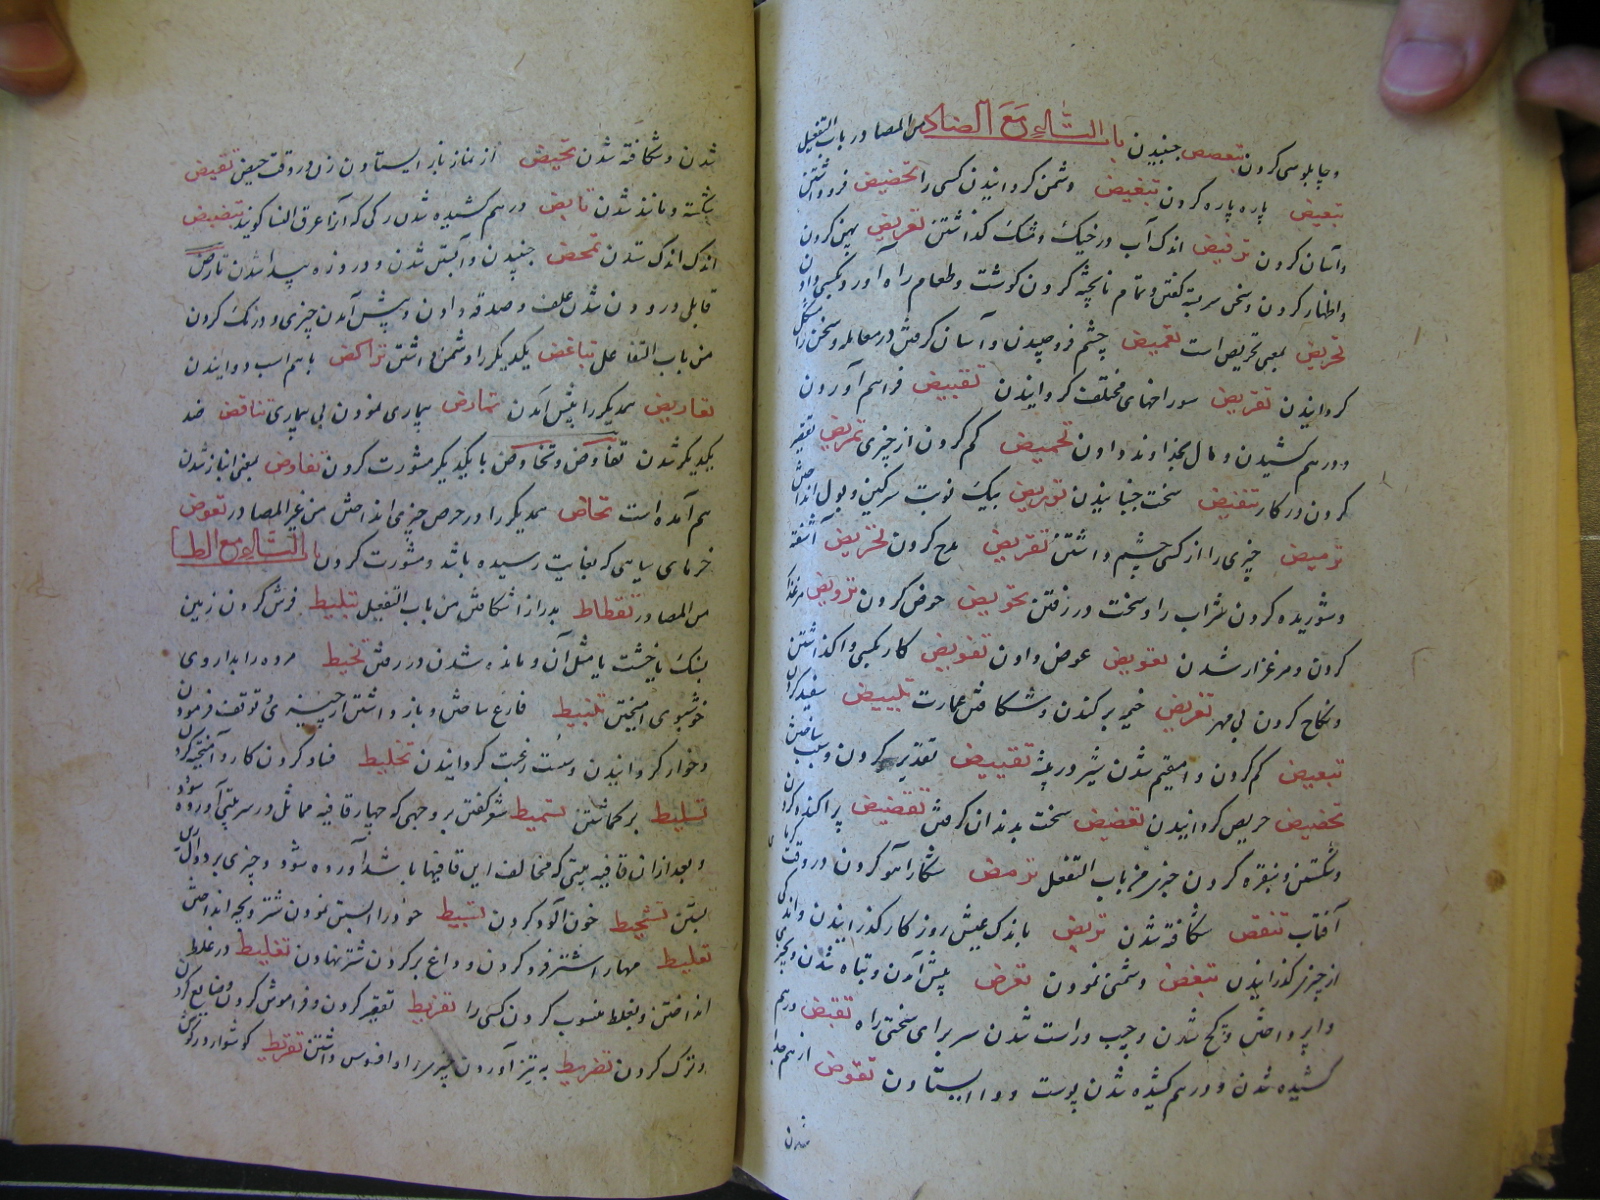 و چاپلوسی کردن تبعصص جنبیدن باب التاء مع الضاد من المصادر باب التفعیل
تبعیض پاره پاره کردن تبغیض دشمن گردانیدن کسی را تخفیض فرو داشتن
و آسان کردن ترفیض اندک آب در خیک و مشک گذاشتن تعریض پهن کردن
و اظهار کردن و سخن سربسته گفتن و تمام ناپخته کردن گوشت و طعام راه آورد بکسی دادن
تحریض بمعنی تحریص است تغمیض چشم فرو چپیدن و آسان گرفتن در معامله و سخن را مشکل
گردانیدن تقریض سوراخهای مختلف گردانیدن تقبیض فراهم آوردن
و درهم کشیدن و مال بخداوند دادن تحمیض کم کردن از چیزی تمریض تقصیر
کردن در کار تنفیض سخت جنبانیدن توریض بیک نوبت سرگین و بول انداختن
ترمیض چیزی را از کسی چشم داشتن تقریض مدح کردن تخریض آشفته
و شوریده کردن شراب را و سخت در رفتن تحویض حوض کردن ترویض مرغزار
کردن و مرغزار شدن تعویض عوض دادن تفویض کار بکسی واگذاشتن
و نکاح کردن بی مهر تقویض خیمه برکندن و شکافتن عمارت تبییض سفید کردن
تبعیض کم کردن و مقیم شدن شیر در بیشه تقییض تقدیر کردن و سبب ساختن
تحضیض حریص گردانیدن تعضیض سخت بدندان گرفتن تقضیض پراکنده کردن
و شکستن و نقره کردن چیزی من باب التفعل ترمض شکار آهو کردن در وقت گرما
آفتاب تنقض شکافته شدن تربض باندک عیش روزگار گذرانیدن و اندکی
از چیز گذرانیدن تبغض دشمنی نمودن تعرض پیش آمدن و تباه شدن و بچیزی
وا پرداختن و کج شدن و چپ و راست شدن سر برای سختی راه تقبض درهم
کشیده شدن و درهم کشیده شدن پوست و وا ایستادن تقوض از هم جدا
شدن
شدن و شکافته شدن تحیض از نماز باز ایستادن زن در وقت حیض تقیض
شکسته و مانند شدن تابض درهم کشیده شدن رگی که آنرا عرق النسا گویند تبضیض
اندک اندک شدن تمخض جنبیدن و آبستن شدن و درد زه پیدا شدن تارض
قابل درودن شدن علف و صدقه دادن و پیش آمدن چیزی و درنگ کردن
من باب التفاعل تباغض یکدیگر را دشمن داشتن تراکض باهم اسب دوانیدن
تعارض همدیگر را پیش آمدن تمارض بیماری نمودن بی بیماری تناقض ضد
یکدیگر شدن تفاوض و تخاوض با یکدیگر مشورت کردن تفاوض بمعنی انباز شدن
هم آمده است تحاض همدیگر را در حرص چیزی انداختن من غیر المصادر تعوض
خرمای سیاهی که بغایت رسیده باشد و مشورت کردن باب التاء مع الطاء
من المصادر تقطاط بدراز اشکافتن من باب التفعیل تبلیط فرش کردن زمین
بسنگ یا خشت یا مثل آن و مانده شدن در رفتن تحنیط مرده را بداروی
خوشبوی آمیختن تثبیط فارغ ساختن و باز داشتن از چیزی و توقف فرمودن
و خوار گردانیدن و سست رغبت گردانیدن تخلیط فساد کردن کار و آمیخته کردن
تسلیط برگماشتن تسمیط شعر گفتن بر وجهی که چهار قافیه مماثل در سر بیتی آورده شود
و بعد ازان قافیه بیتی که مخالف این قافیها باشد آورده شود و چیزی بر دوال زین
بستن تشحیط خون آلود کردن تسبیط خود را آبستن نمودن شتر و بچه انداختن
تعلیط مهار اشتر فرو کردن و داغ بر گردن شتر نهادن تغلیط در غلط
انداختن و بغلط منسوب کردن کسی را تفریط تقصیر کردن و فراموش کردن و ضایع کردن
و ترک کردن تضریط به تیز آوردن چیزی را و افسوس داشتن تقریط گوشوار در گوش